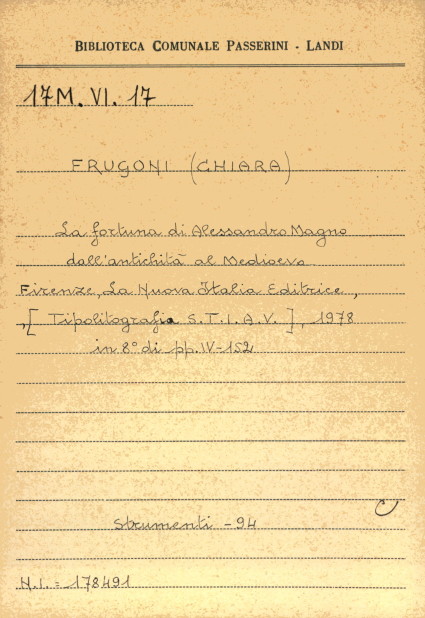 BIBLIOTECA COMUNALE PASSERINI - LANDI
17M. VI. 17
FRUGONI (CHIARA)
La fortuna di Alessandro Magno
dall'antichità al Medioevo
Firenze, La Nuova Italia Editrice,
,[ Tipolitografia S.T.I.A.V. ], 1978
in 8° di pp. IV-152
Strumenti - 94
N.I. = 178491